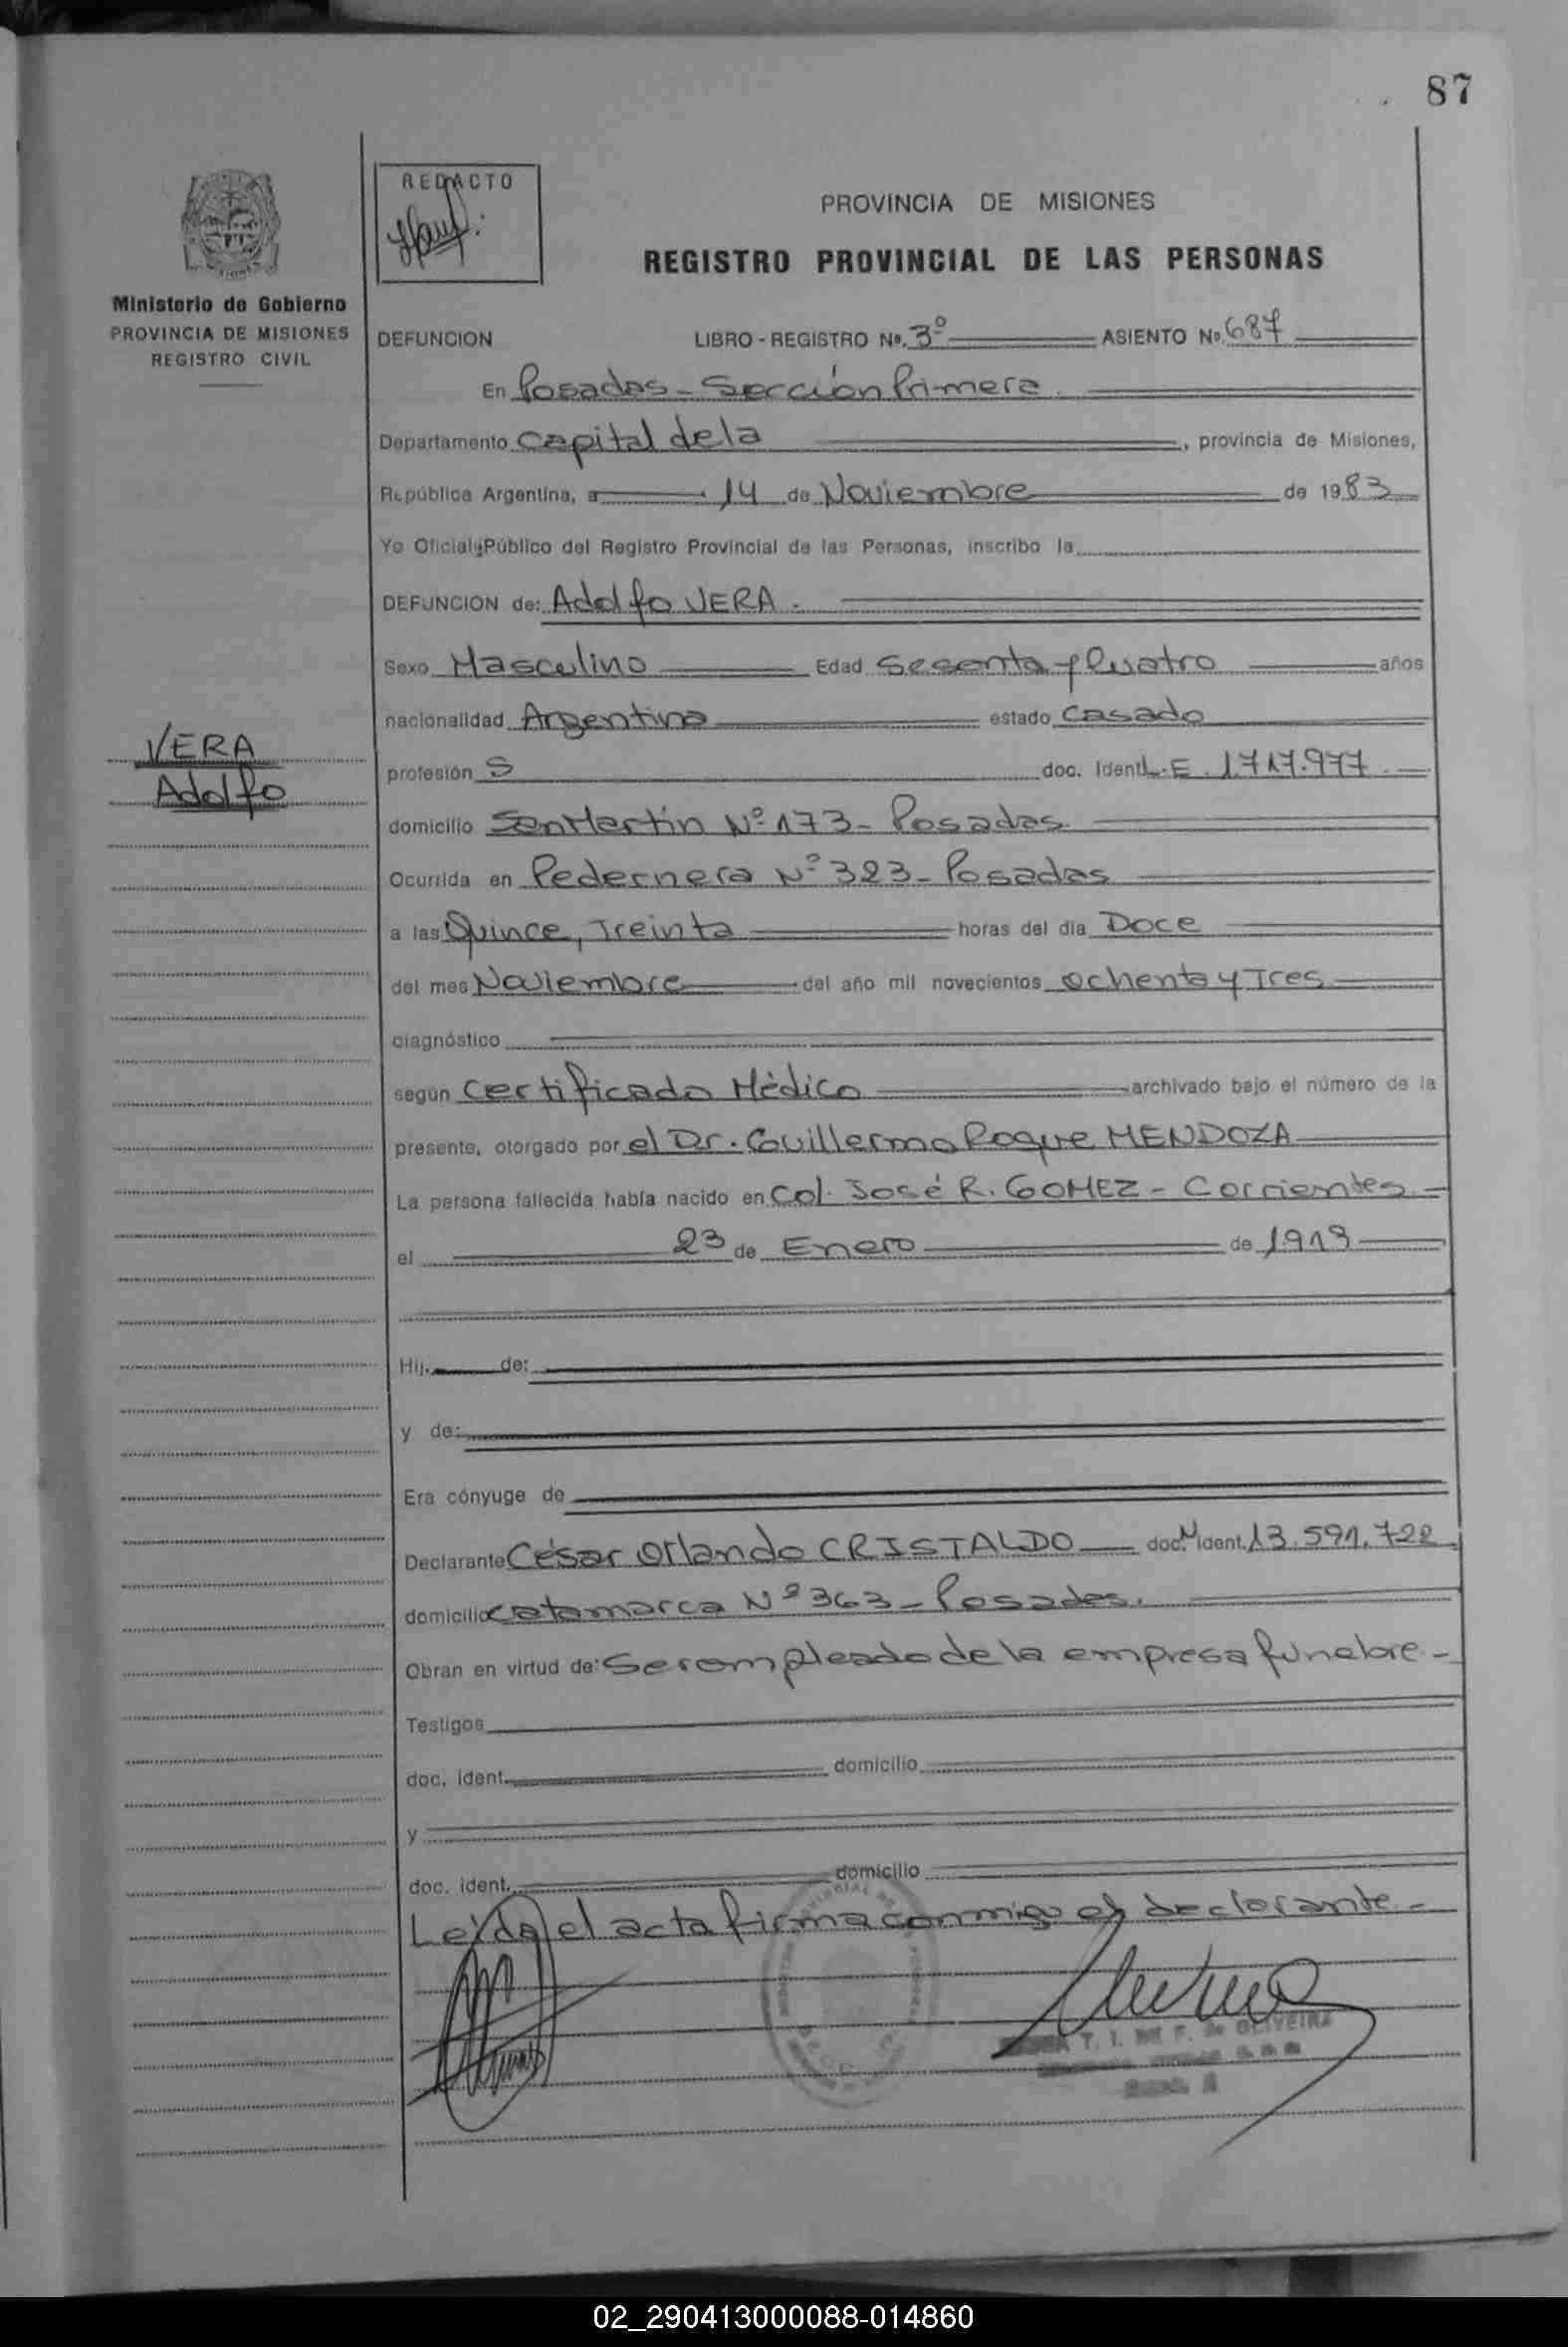 87
REDACTO
PROVINCIA DE MISIONES
REGISTRO PROVINCIAL DE LAS PERSONAS
Ministerio de Gobierno
PROVINCIA DE MISIONES
REGISTRO CIVIL
DEFUNCION LIBRO - REGISTRO No. 3º ASIENTO No. 687
En Posadas - Sección Primera
Departamento Capital de la , provincia de Misiones,
República Argentina, a 14 de Noviembre de 1983
Yo Oficial Público del Registro Provincial de las Personas, inscribo la
DEFUNCION de: Adolfo VERA.
Sexo Masculino Edad Sesenta y Cuatro años
nacionalidad Argentina estado Casado
VERA
Adolfo
profesión S doc. Ident. L.E. 1.717.977.
domicilio San Martín Nº 173 - Posadas
Ocurrida en Pedernera Nº 323 - Posadas
a las Quince, Treinta horas del día Doce
del mes Noviembre del año mil novecientos ochenta y Tres
diagnóstico
según Certificado Médico archivado bajo el número de la
presente, otorgado por el Dr. Guillermo Roque MENDOZA
La persona fallecida había nacido en Col. José R. GOMEZ - Corrientes -
el 23 de Enero de 1919
Hij. de:
y de:
Era cónyuge de
Declarante César Orlando CRISTALDO doc. Ident. 13.591.722
domicilio Catamarca Nº 363 - Posadas.
Obran en virtud de: Ser empleado de la empresa fúnebre. -
Testigos
doc. ident. domicilio
y
doc. ident. domicilio
Leída el acta firma conmigo el declarante. -
T. I. DE F. de OLIVEIRA
02_290413000088-014860